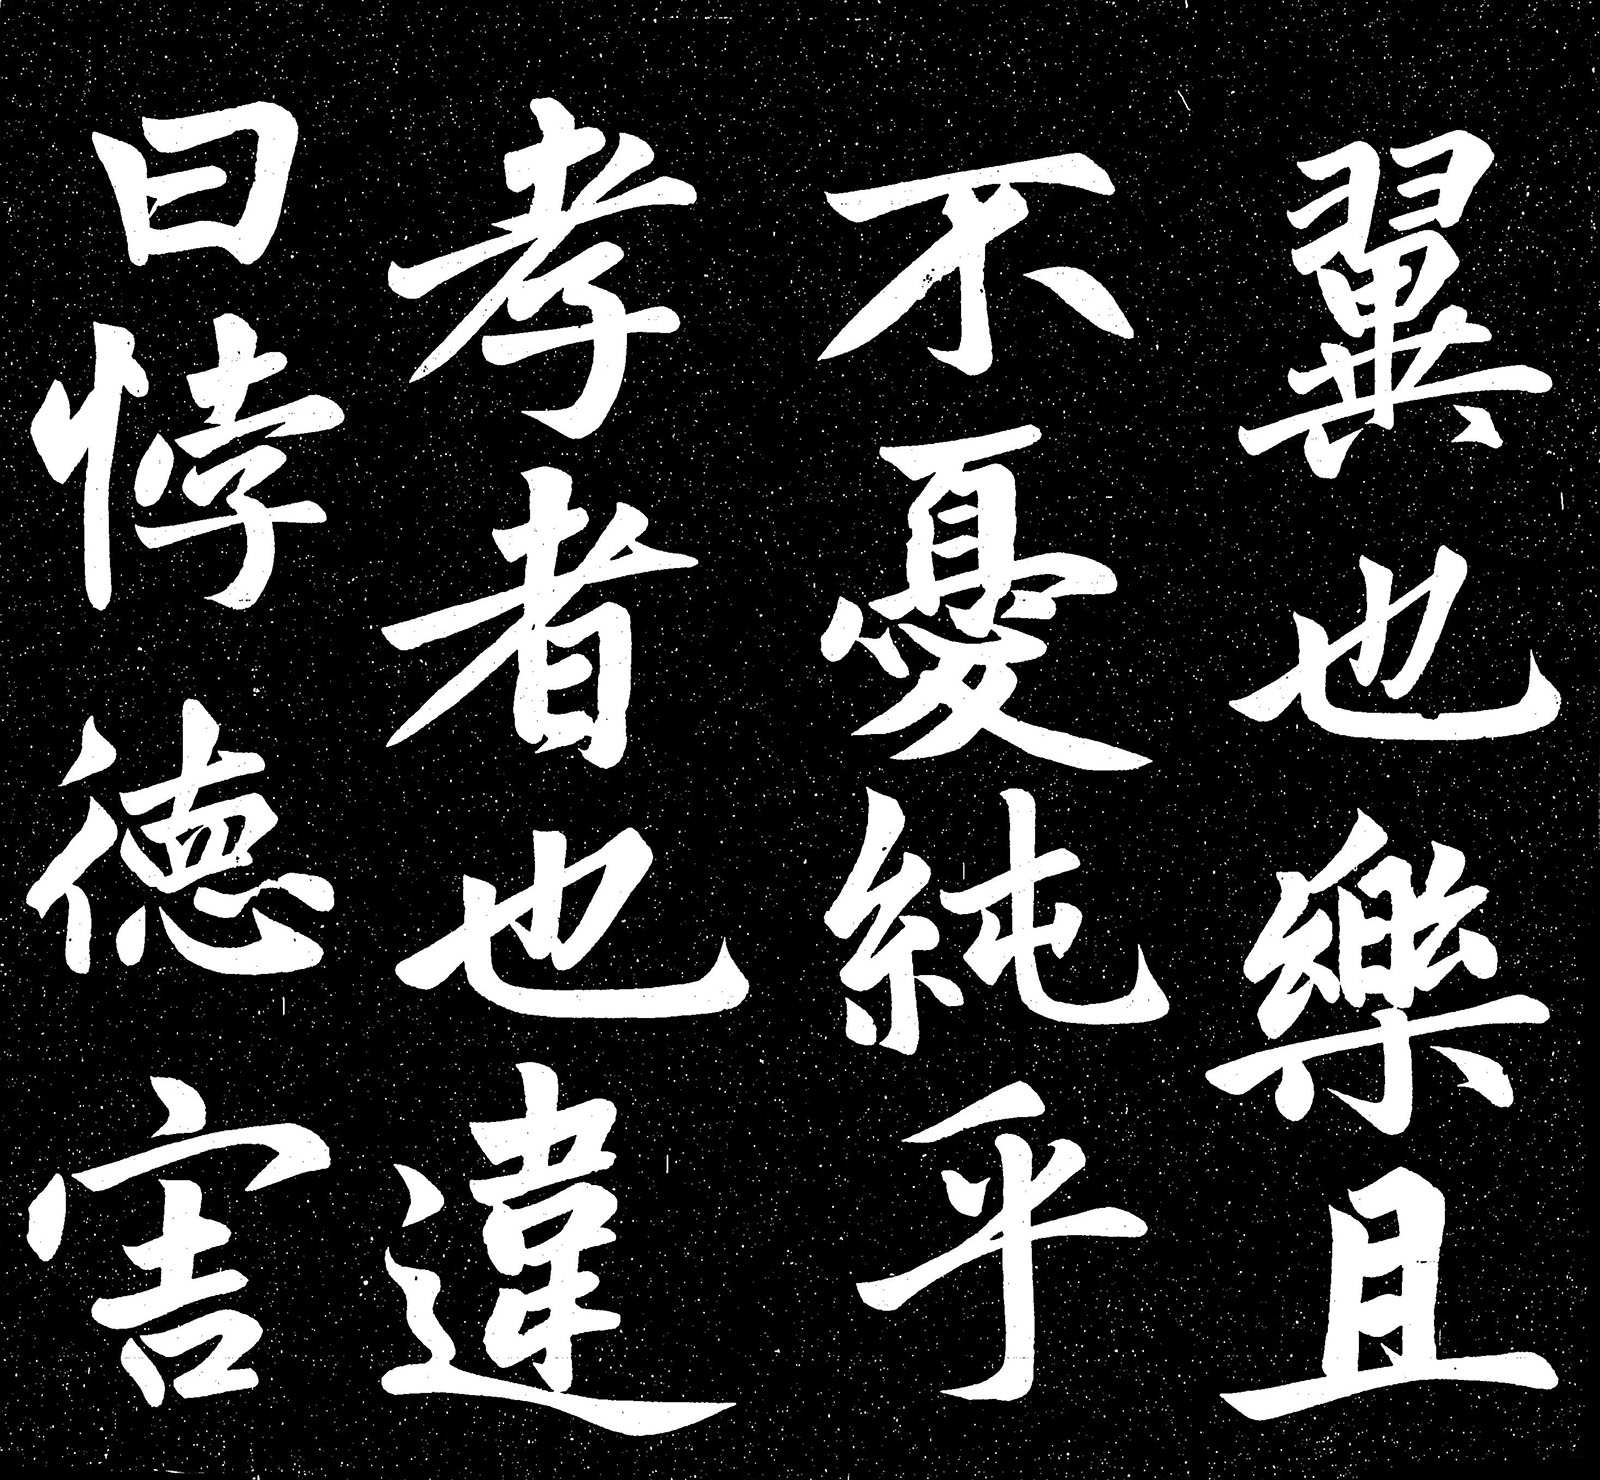 翼也樂且
不憂純乎
孝者也違
曰悖德害